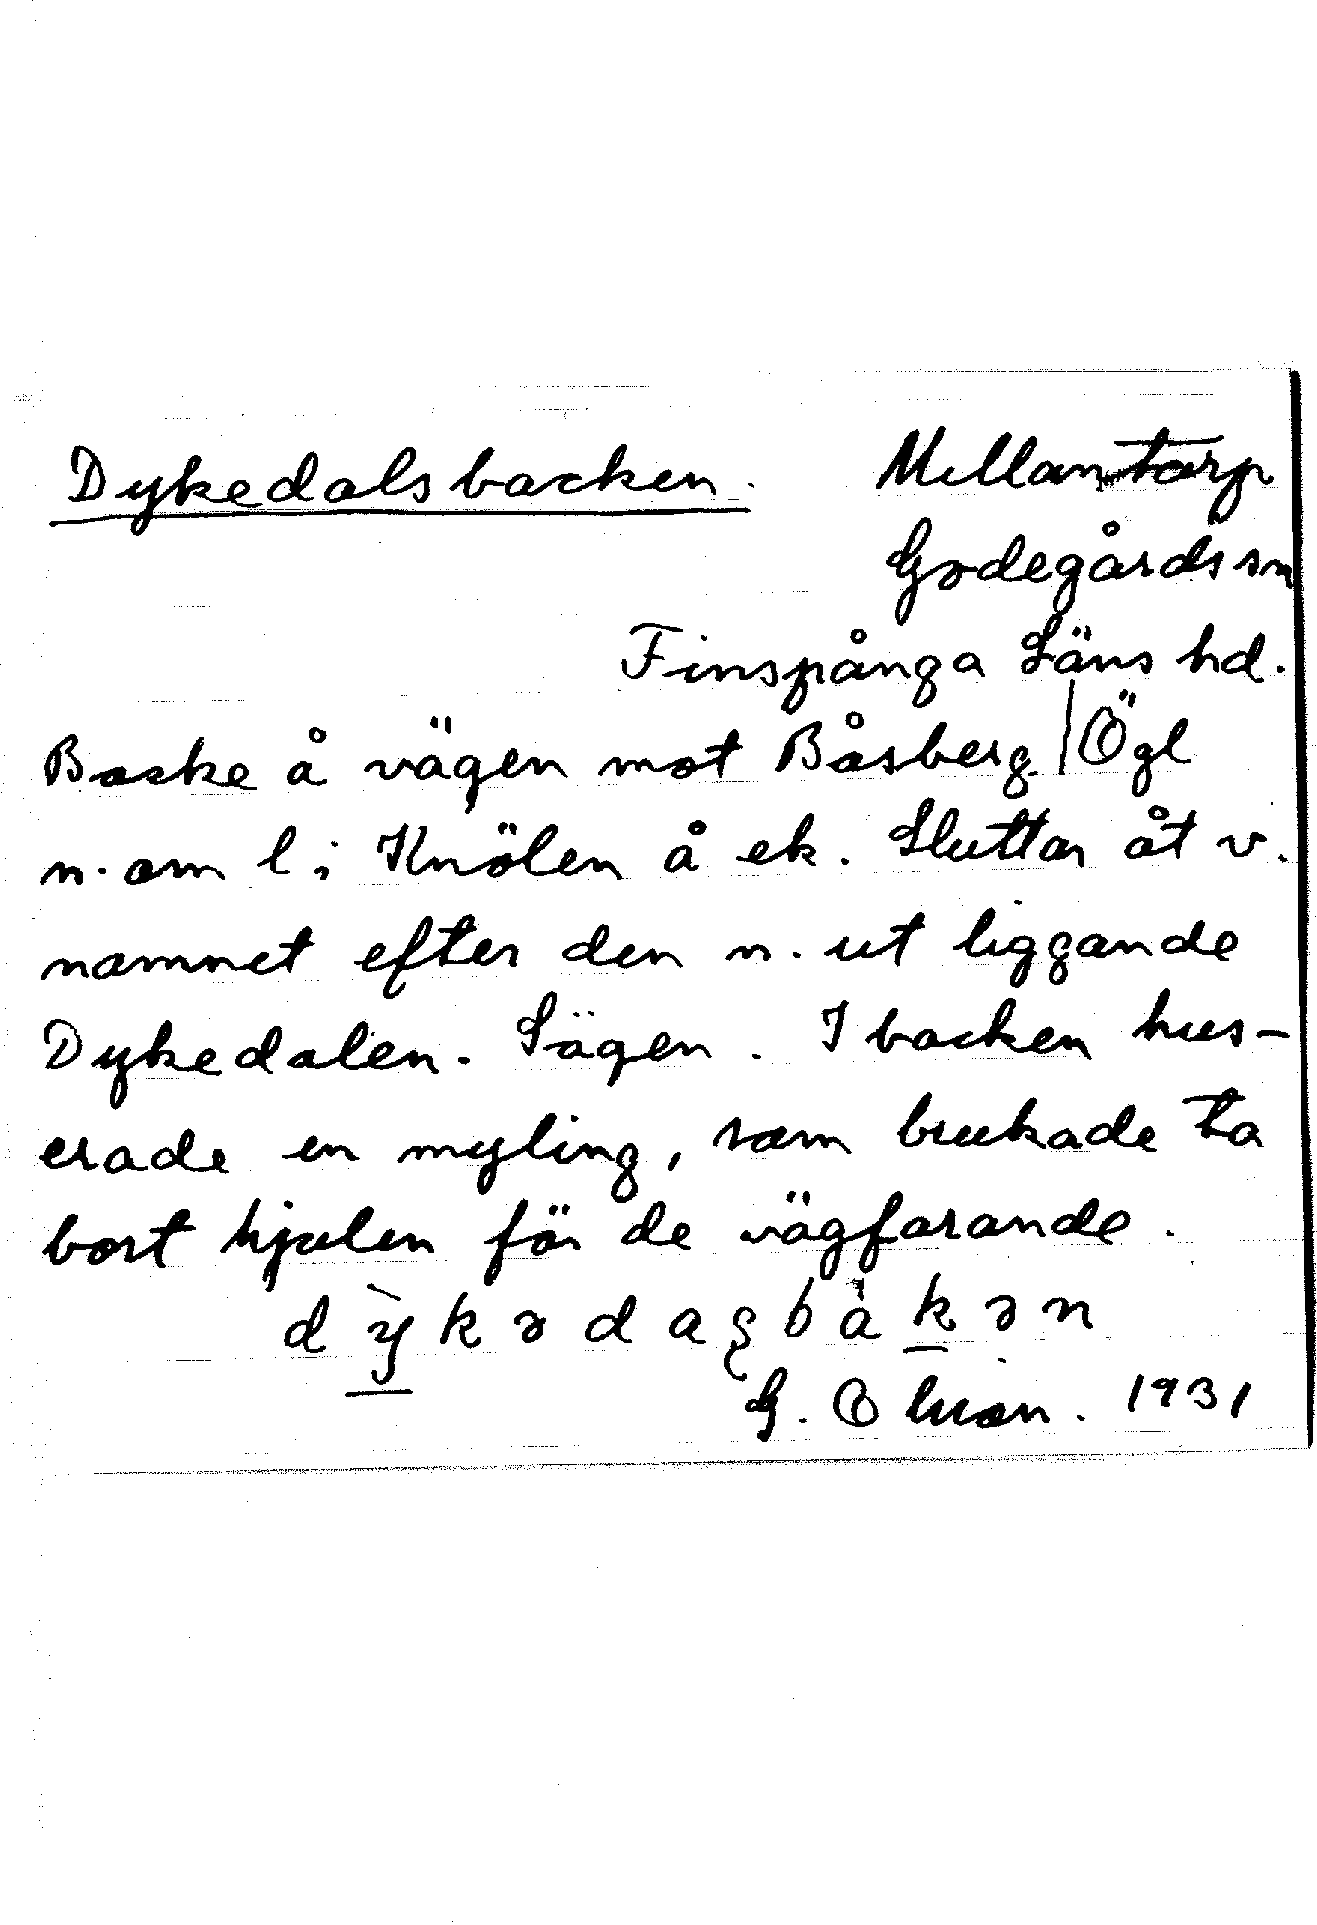 Dykedalsbacken. Mellantorp
Godegårds sn
Finspånga Läns hd.
Backe å vägen mot Båsberg / Ögl
n. om l; Knölen å ek. Sluttar åt v.
namnet efter den n. ut liggande
Dykedalen. Sägen. I backen hus-
erade en myling, som brukade ta
bort hjulen för de vägfarande.
dỳkədaʂbàkən
G. 1931